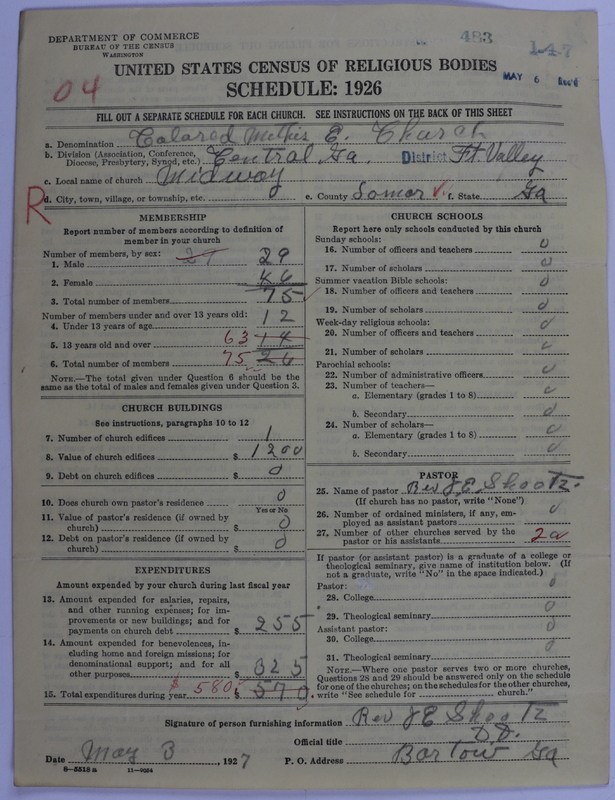 DEPARTMENT OF COMMERCE
BUREAU OF THE CENSUS
WASHINGTON
483
147
MAY 6 Rec'd
04
UNITED STATES CENSUS OF RELIGIOUS BODIES
SCHEDULE: 1926
FILL OUT A SEPARATE SCHEDULE FOR EACH CHURCH. SEE INSTRUCTIONS ON THE BACK OF THIS SHEET
a. Denomination Colored E. Church
b. Division (Association, Conference, Diocese, Presbytery, Synod, etc.) Central Ga. District Ft. Valley
c. Local name of church Midway
R
d. City, town, village, or township, etc. e. County f. State Ga
MEMBERSHIP
Report number of members according to definition of member in your church
Number of members, by sex: 29
1. Male
2. Female 46
3. Total number of members 75
Number of members under and over 13 years old:
4. Under 13 years of age 12
5. 13 years old and over 63 14
6. Total number of members 75 26
NOTE.—The total given under Question 6 should be the same as the total of males and females given under Question 3.
CHURCH BUILDINGS
See instructions, paragraphs 10 to 12
7. Number of church edifices 1
8. Value of church edifices $ 1200
9. Debt on church edifices $ 0
10. Does church own pastor's residence 0
Yes or No
11. Value of pastor's residence (if owned by church) $ 0
12. Debt on pastor's residence (if owned by church) $ 0
EXPENDITURES
Amount expended by your church during last fiscal year
13. Amount expended for salaries, repairs, and other running expenses; for improvements or new buildings; and for payments on church debt $ 255
14. Amount expended for benevolences, including home and foreign missions; for denominational support; and for all other purposes $ 325
15. Total expenditures during year $ 580 $ 570
CHURCH SCHOOLS
Report here only schools conducted by this church
Sunday schools:
16. Number of officers and teachers 0
17. Number of scholars 0
Summer vacation Bible schools:
18. Number of officers and teachers 0
19. Number of scholars 0
Week-day religious schools:
20. Number of officers and teachers 0
21. Number of scholars 0
Parochial schools:
22. Number of administrative officers 0
23. Number of teachers—
a. Elementary (grades 1 to 8) 0
b. Secondary 0
24. Number of scholars—
a. Elementary (grades 1 to 8) 0
b. Secondary 0
PASTOR
25. Name of pastor Rev J E Shootz.
(If church has no pastor, write "None")
26. Number of ordained ministers, if any, employed as assistant pastors 0
27. Number of other churches served by the pastor or his assistants
If pastor (or assistant pastor) is a graduate of a college or theological seminary, give name of institution below. (If not a graduate, write "No" in the space indicated.)
Pastor:
28. College 0
29. Theological seminary 0
Assistant pastor:
30. College 0
31. Theological seminary 0
NOTE.—Where one pastor serves two or more churches, Questions 28 and 29 should be answered only on the schedule for one of the churches; on the schedules for the other churches, write "See schedule for church."
Signature of person furnishing information Rev J E Shootz
Official title D.D.
Date May 3, 1927 P. O. Address Bartow Ga
8—5515 a 11—9024